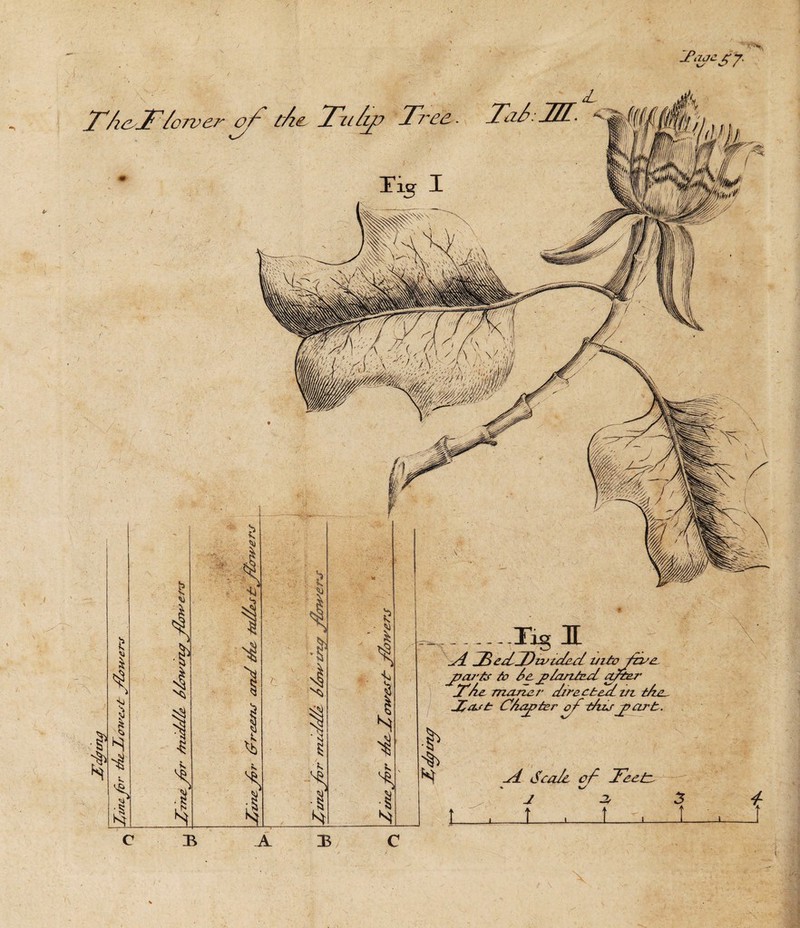 Page 57.
The Flower of the Tulip Tree. Tab: III.d
Fig I
Edging
Line for the Lowest flowers
Line for middle blowing flowers
Line for Greens and the tallest flowers
Line for middle blowing flowers
Line for the Lowest flowers
Edging
C B A B C
Fig II
A Bed Divided into five
parts to be planted after
The maner directed in the
Last Chapter of this part.
A Scale of Feet
1 2 3 4